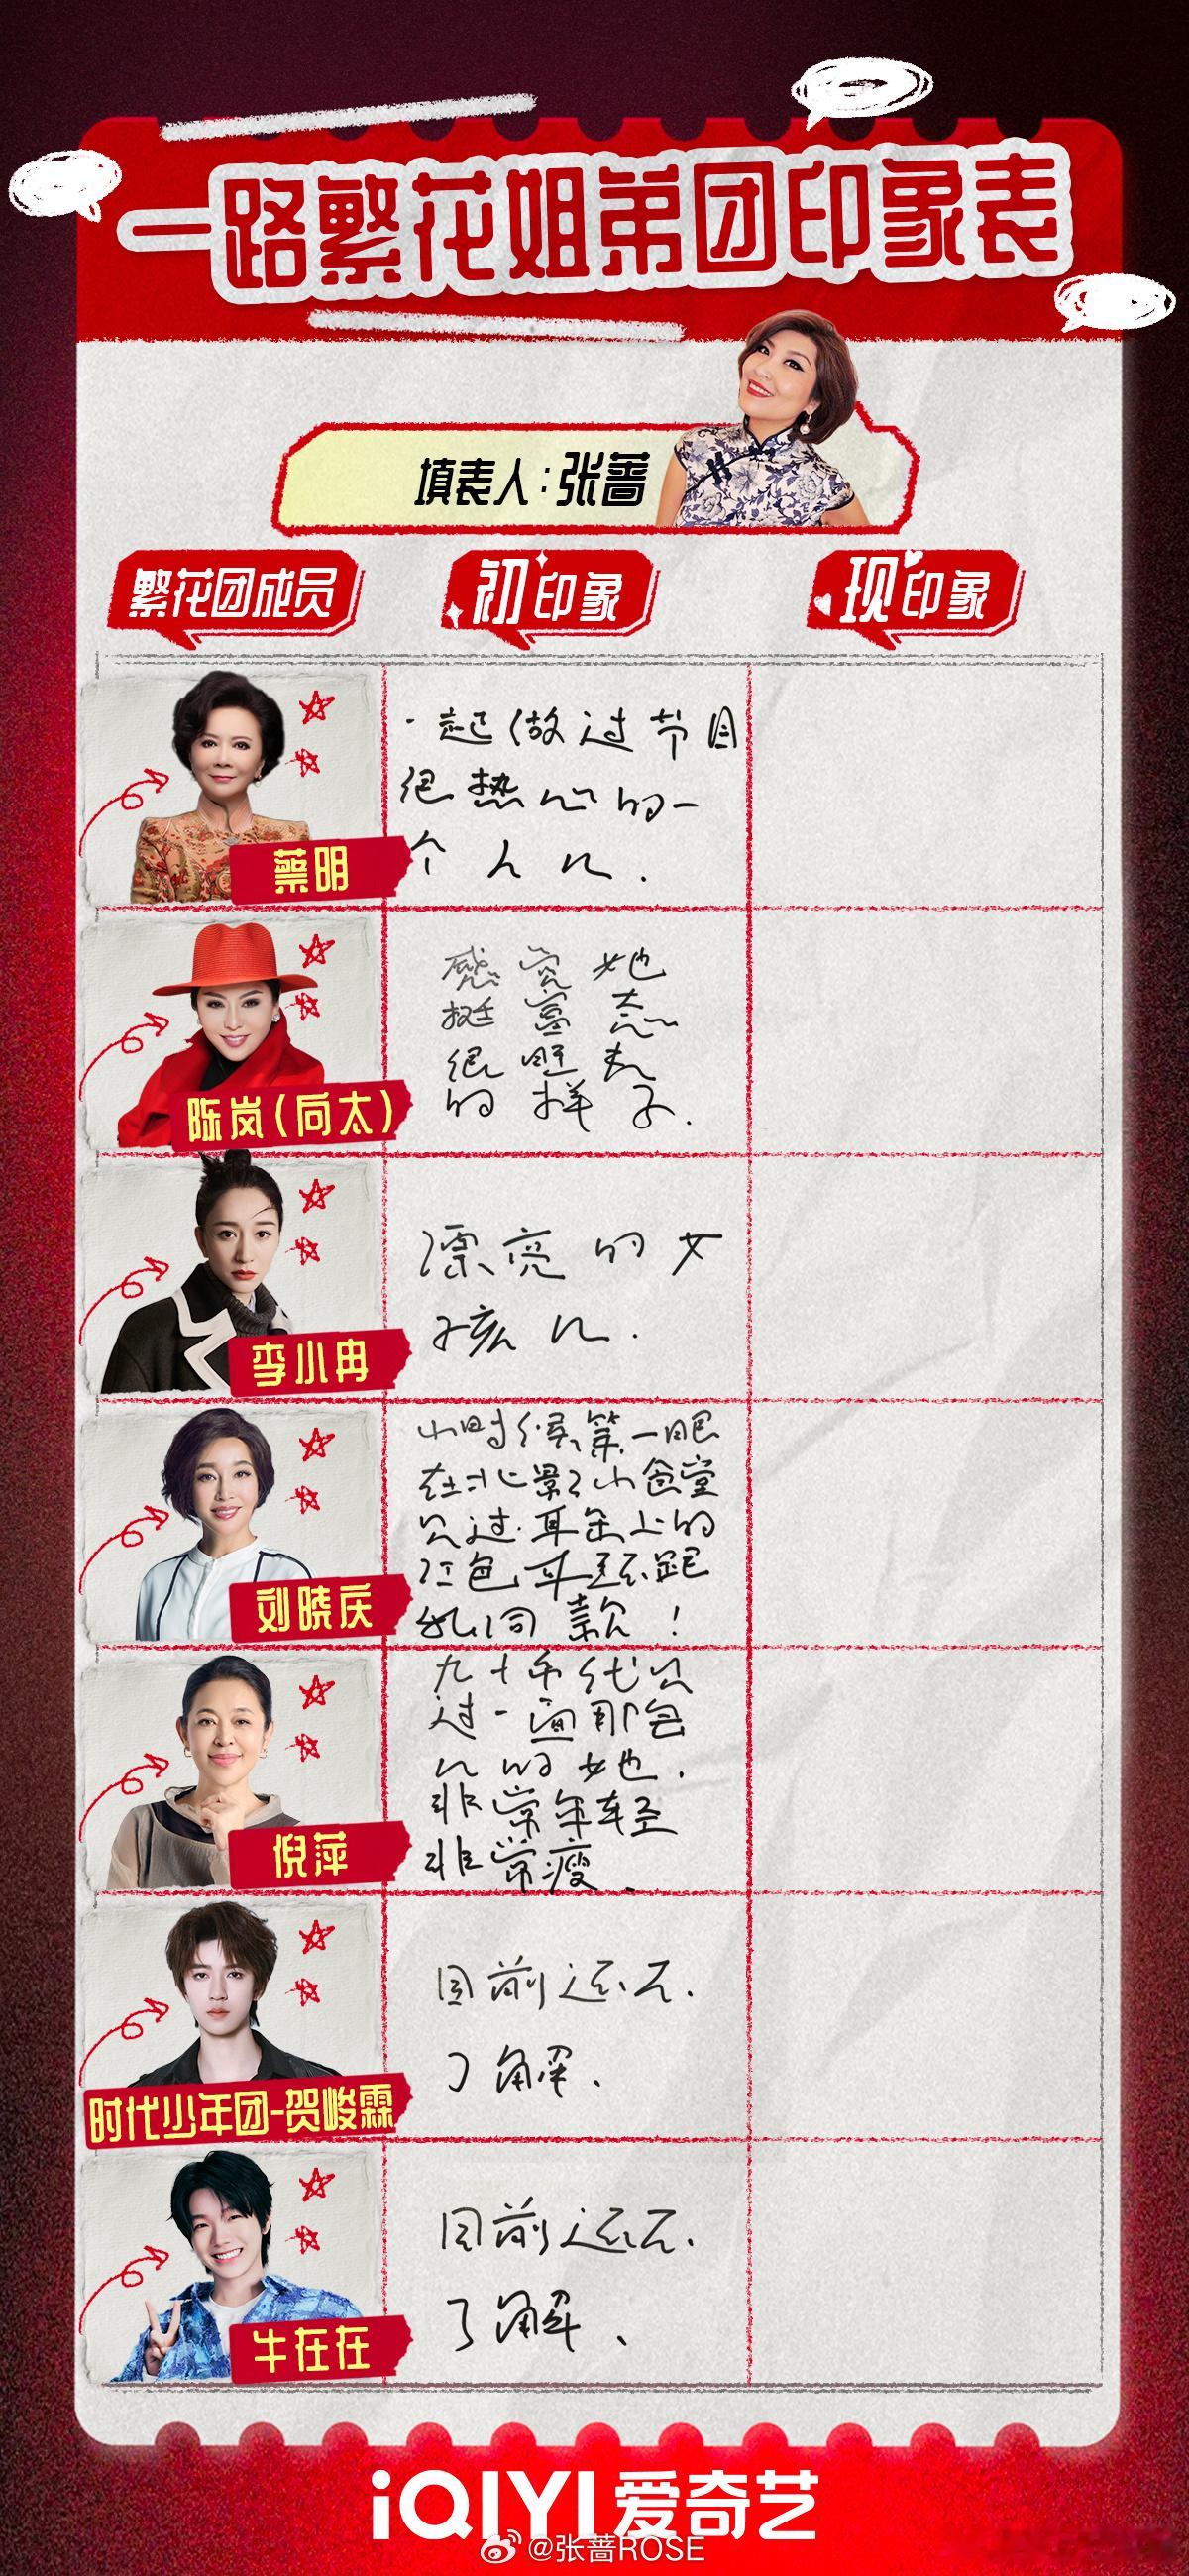 一路繁花姐弟团印象表
填表人：张蔷
繁花团成员
初印象
现印象
蔡明
一起做过节目
很热心的一
个人儿.
陈岚(向太)
感觉她
挺富态
很旺夫
的样子.
李小冉
漂亮的女
孩儿.
刘晓庆
小时候第一眼
在北影小食堂
见过.耳朵上的
红色耳环跟
我同款!
倪萍
九十年代见
过一面那会
儿的她.
非常年轻
非常瘦.
时代少年团-贺峻霖
目前还不.
了解.
牛在在
目前还不.
了解、
iQIYI爱奇艺
@张蔷ROSE